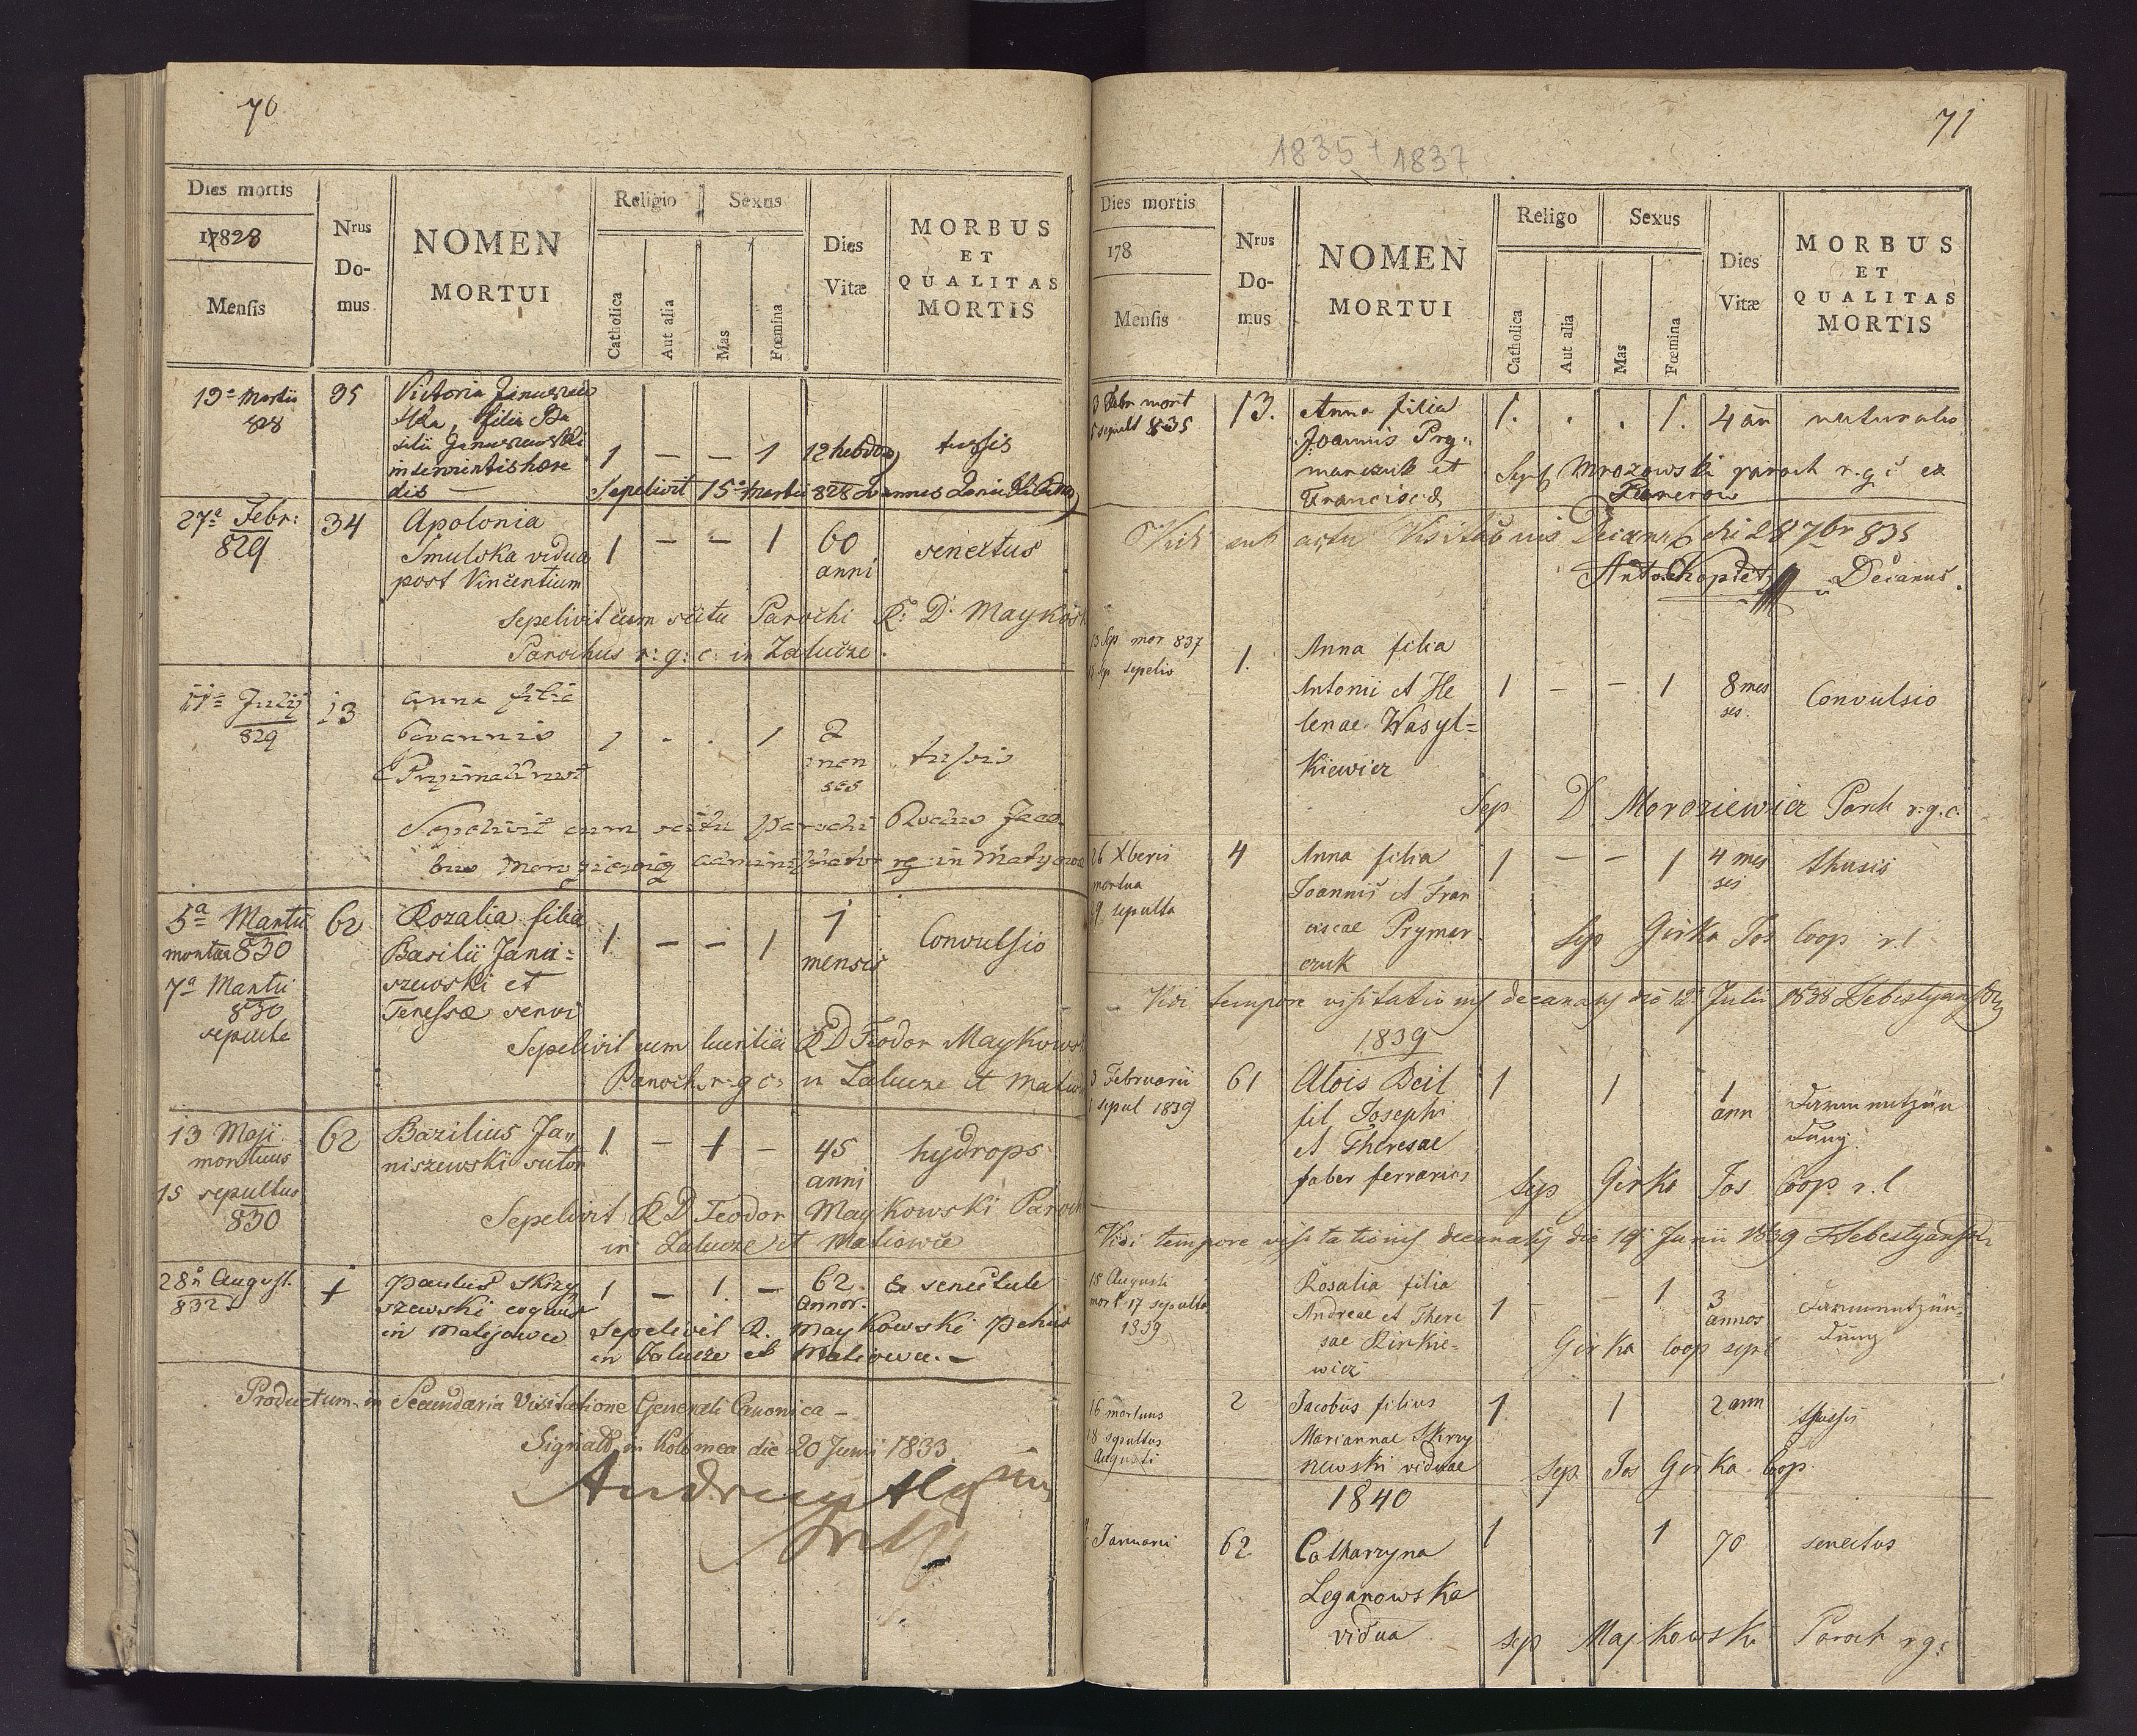 70
Dies mortis
17828
Mensis
Nrus
Do-
mus
NOMEN
MORTUI
Religio
Sexus
Catholica
Aut alia
Mas
Fœmina
Dies
Vitæ
MORBUS
ET
QUALITAS
MORTIS
13a Martii
828
35
Victoria
ska, filia Ba
silii Januszewski
inservientis hore
dis
1 — — 1 12 hebdo tussis
Sepelivit 15a Martii 828 Joannes
27a Febr:
829
34
Apolonia
Smulska vidua
post Vincentium
1 — — 1 60
anni
senectus
Sepelivit cum scitu Parochi R. D. Maykowsk
Parochus r: g: c: in Zalucze.
11a Julij
829
13
Anna filia
Joannis
1 - . 1 2
men
ses
tussis
Sepelivit cum scitu Parochi
administrator rg in Matyowce
5a Martii
mortua 830
7a Martii
830
sepulta
62
Rozalia filia
Basilii Janu=
szewski et
Teressæ servi
1 — — 1 1
mensis
Convulsio
Sepelivit cum R D Teodor Maykowsk
Paroch. r: g c: in Zalucze et
13 Maji
mortuus
15 sepultus
830
62
Bazilius Ja„
niszewski sutor
1 — 1 — 45
anni
hydrops
Sepelivit R D Teodor Maykowski Paroch
in Zalucze et Matiowce
28a August.
832.
1
Paulus Skrzy
szewski coquus
in Matijowce
1 — 1. — 62
annor.
Ex senectute
Sepelivit R. Maykowski
in Zalucze et Matiowce. —
Productum in Secundaria Visitatione Generali Canonica —
Signatd in Kolomea die 20 Junii 1833.
71
1835 + 1837
Dies mortis
178
Mensis
Nrus
Do-
mus
NOMEN
MORTUI
Religo
Sexus
Catholica
Aut alia
Mas
Fœmina
Dies
Vitæ
MORBUS
ET
QUALITAS
MORTIS
3 Febr mort
5 sepult 835
13.
Anna filia
Joannis Pry„
marczuk et
Francisca
1. . . 1. 4 an naturalis
Sep Mrozowski paroch r. g. c ex
Vidi sub actu Visitationis Decanal die 28 7br 835
Decanus.
13 Sep mor 837
15 Sep sepelio
1.
Anna filia
Antonii et He
lenae Wasyl=
kiewicz
1 — — 1 8 mes
ses.
Convulsio
Sep D Moroziewicz Parch r. g. c.
26 Xberis
mortua
29 sepulta
4
Anna filia
Joannis et Fran
ciscae Prymar
czuk
1 — — 1 4 mes
ses
thusis
Sep Girka Jos Coop r. l
Vidi tempore visitationis decanalis die 12a Julii 1838
1839
3 Februarii
sepul 1839
61
Alois Beil
fil Josephi
et Theresae
faber ferrarius
1 1 1
ann
Sep Girka Jos Coop r. l
Vidi tempore visitationis decanalis die 19 Junii 1839
15 Augusti
mort 17 sepulta
1839
Rosalia filia
Andreae et There
sae Zinkie=
wicz
1 — — 1 3
annos
Girka Coop sepl
16 mortuus
18 sepultus
Augusti
2
Jacobus filius
Mariannae Skrzy
newski viduae
1 1 2 ann
thussis
Sep Jos Girka Coop.
1840
Januarii
62
Catharzyna
Leganowska
vidua
1 1 70 senectus
sep Majkowski Paroch rgc